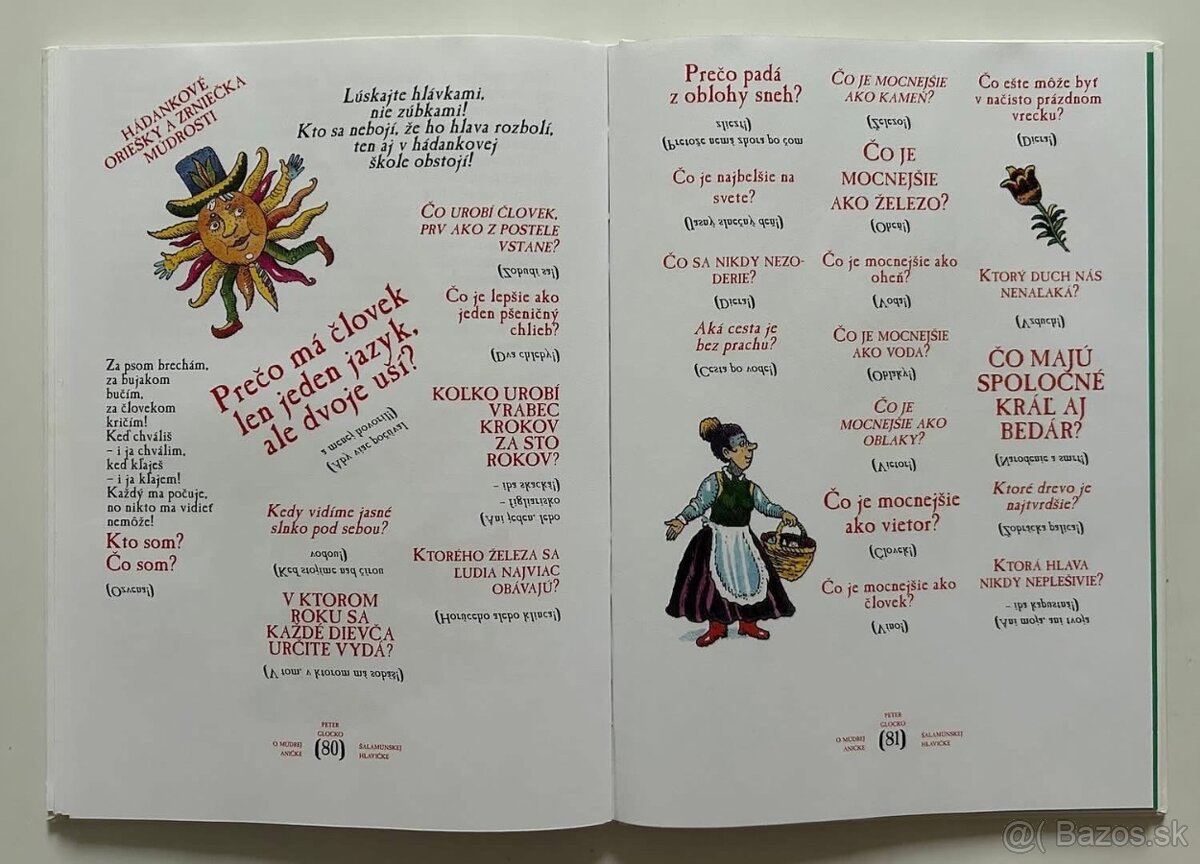 HÁDANKOVÉ
ORIEŠKY A ZRNIEČKA
MÚDROSTI
Lúskajte hlávkami,
nie zúbkami!
Kto sa nebojí, že ho hlava rozbolí,
ten aj v hádankovej
škole obstojí!
Za psom brechám,
za bujakom
bučím,
za človekom
kričím!
Keď chváliš
– i ja chválim,
keď kľaješ
– i ja kľajem!
Každý ma počuje,
no nikto ma vidieť
nemôže!
Kto som?
Čo som?
(Ozvena!)
Prečo má človek
len jeden jazyk,
ale dvoje uší?
(Aby viac počúval
a menej hovoril!)
Kedy vidíme jasné
slnko pod sebou?
(Keď stojíme nad čírou
vodou!)
V KTOROM
ROKU SA
KAŽDÉ DIEVČA
URČITE VYDÁ?
(V tom, v ktorom má sobáš!)
ČO UROBÍ ČLOVEK,
PRV AKO Z POSTELE
VSTANE?
(Zobudí sa!)
Čo je lepšie ako
jeden pšeničný
chlieb?
(Dva chleby!)
KOĽKO UROBÍ
VRABEC
KROKOV
ZA STO
ROKOV?
(Ani jeden, lebo
– figliarisko
– iba skacká!)
KTORÉHO ŽELEZA SA
ĽUDIA NAJVIAC
OBÁVAJÚ?
(Horúceho alebo klinca!)
PETER
GLOCKO
O MÚDREJ
ANIČKE
(80)
ŠALAMÚNSKEJ
HLAVIČKE
Prečo padá
z oblohy sneh?
(Pretože nemá zhora po čom
zliezť!)
Čo je najbelšie na
svete?
(Jasný slnečný deň!)
ČO SA NIKDY NEZO-
DERIE?
(Diera!)
Aká cesta je
bez prachu?
(Cesta po vode!)
ČO JE MOCNEJŠIE
AKO KAMEŇ?
(Železo!)
ČO JE
MOCNEJŠIE
AKO ŽELEZO?
(Oheň!)
Čo je mocnejšie ako
oheň?
(Voda!)
ČO JE MOCNEJŠIE
AKO VODA?
(Oblaky!)
ČO JE
MOCNEJŠIE AKO
OBLAKY?
(Vietor!)
Čo je mocnejšie
ako vietor?
(Človek!)
Čo je mocnejšie ako
človek?
(Víno!)
Čo ešte môže byť
v načisto prázdnom
vrecku?
(Diera!)
KTORÝ DUCH NÁS
NENAĽAKÁ?
(Vzduch!)
ČO MAJÚ
SPOLOČNÉ
KRÁĽ AJ
BEDÁR?
(Narodenie a smrť!)
Ktoré drevo je
najtvrdšie?
(Žobrácka palica!)
KTORÁ HLAVA
NIKDY NEPLEŠIVIE?
(Ani moja, ani tvoja
– iba kapustná!)
PETER
GLOCKO
O MÚDREJ
ANIČKE
(81)
ŠALAMÚNSKEJ
HLAVIČKE
@( Bazos.sk